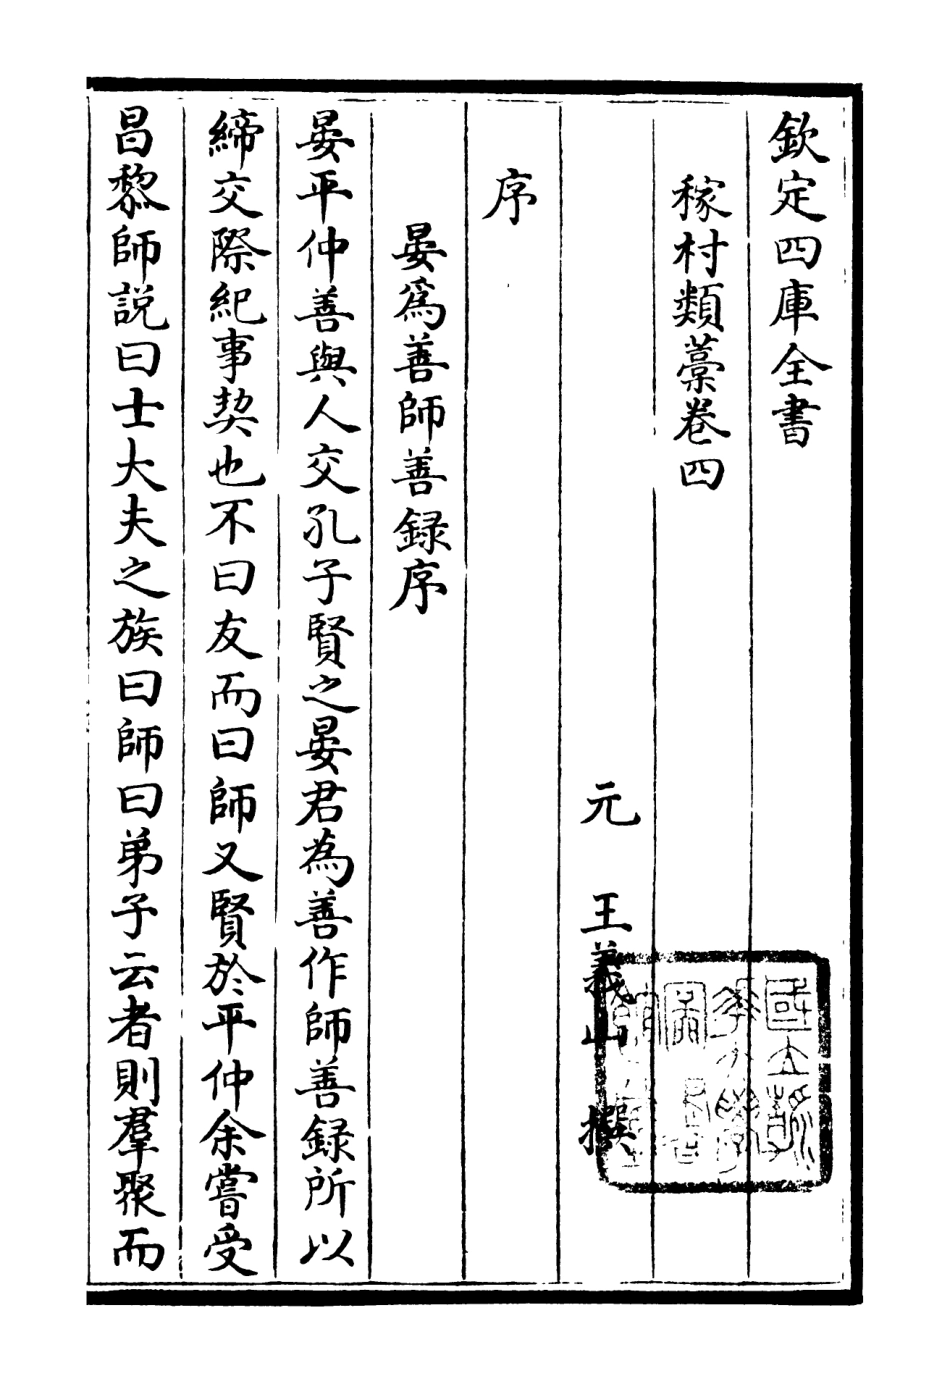 欽定四庫全書
稼村類藁卷四
元　王義山　撰
序
晏爲善師善録序
晏平仲善與人交孔子賢之晏君為善作師善録所以
締交際紀事契也不曰友而曰師又賢於平仲余嘗受
昌黎師説曰士大夫之族曰師曰弟子云者則羣聚而